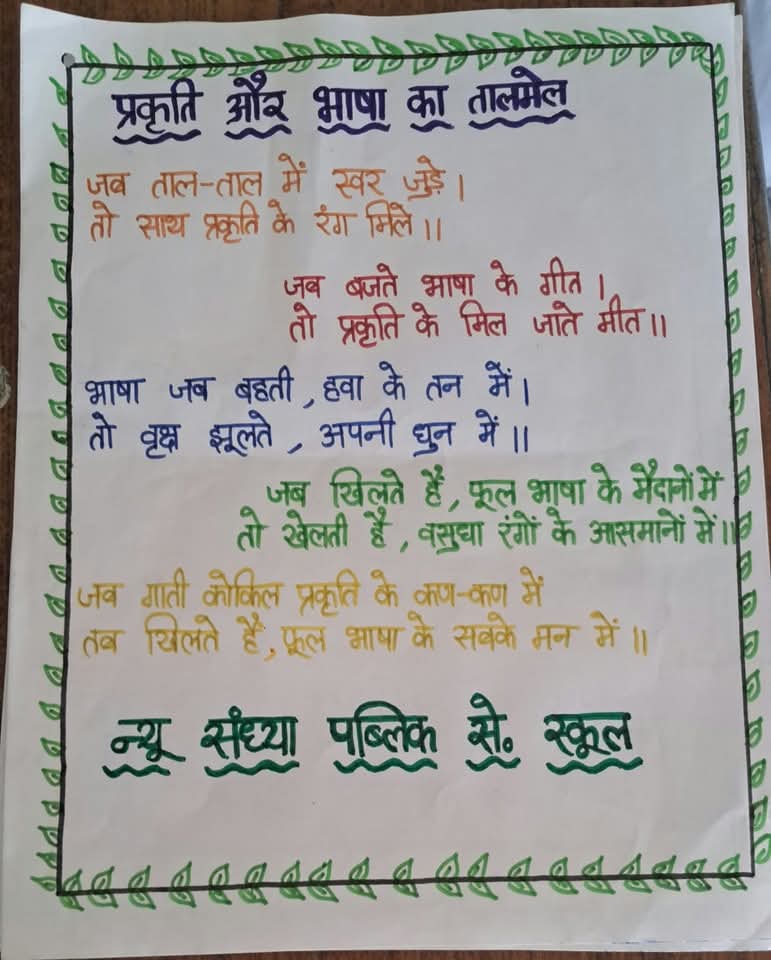 प्रकृति और भाषा का तालमेल
जब ताल-ताल में स्वर जुड़े।
तो साथ प्रकृति के रंग मिले।।
जब बजते भाषा के गीत।
तो प्रकृति के मिल जाते मीत॥
भाषा जब बहती, हवा के तन में।
तो वृक्ष झूलते, अपनी धुन में॥
जब खिलते हैं, फूल भाषा के मैदानों में
तो खेलती है, वसुधा रंगों के आसमानों में॥
जब गाती कोकिल प्रकृति के कण-कण में
तब खिलते हैं, फूल भाषा के सबके मन में॥
न्यू संध्या पब्लिक से. स्कूल